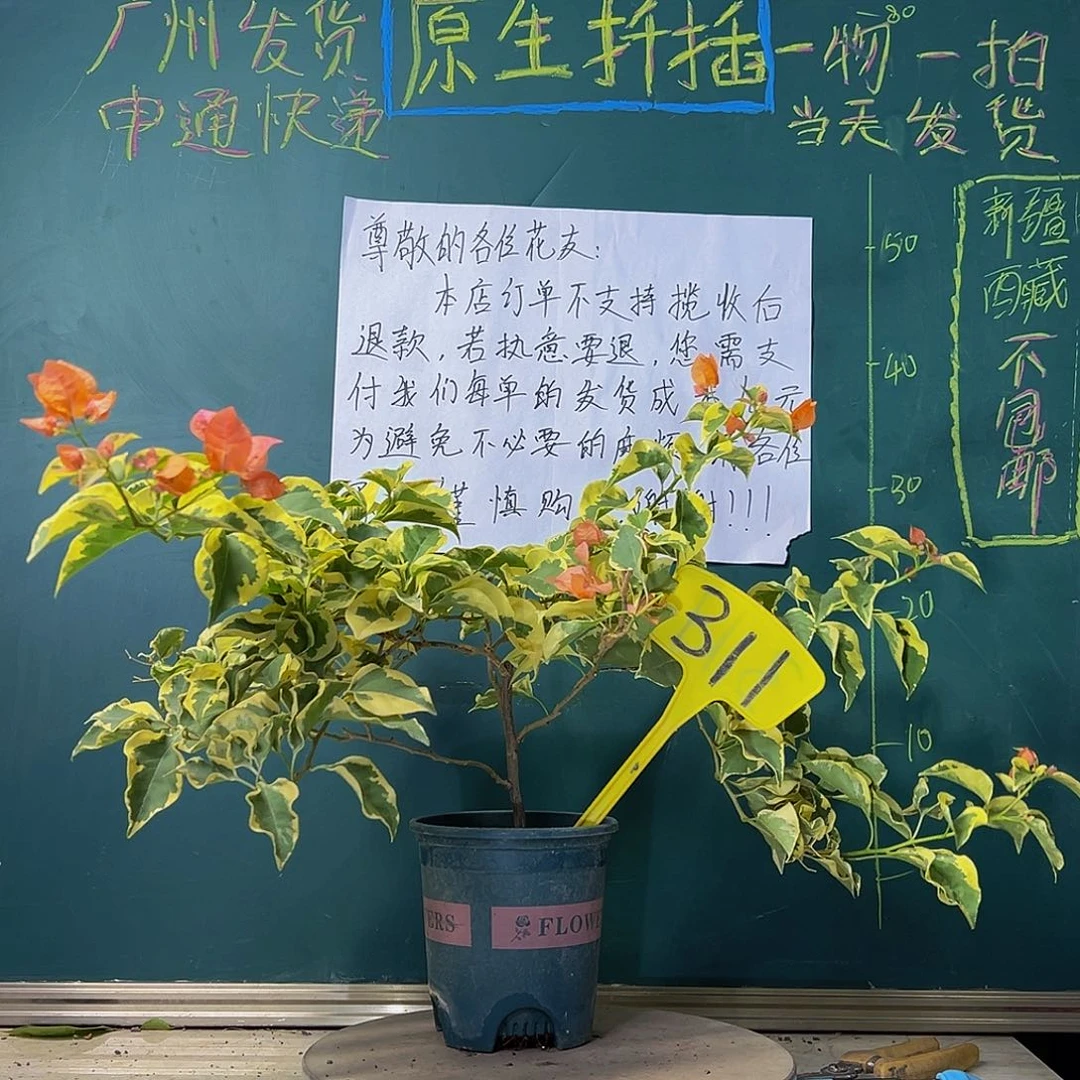 广州发货
申通快递
原生扦插
一物一拍
当天发货
80
50
40
30
20
10
新疆
西藏
不包邮
尊敬的各位花友:
本店订单不支持揽收后
退款,若执意要退,您需支
付我们每单的发货成
为避免不必要的麻烦 各位
谨慎购 谢谢!!!
311
ERS
FLOWE